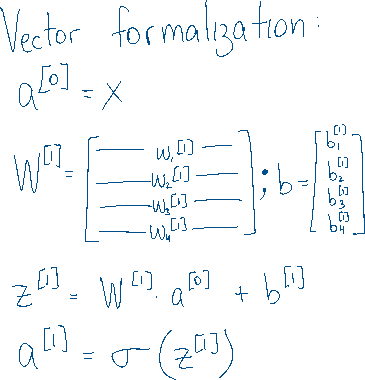 Vector formalization:
a^[0] = x
W^[1] = [— w₁^[1] —
— w₂^[1] —
— w₃^[1] —
— w₄^[1] —] ; b = [b₁^[1]
b₂^[1]
b₃^[1]
b₄^[1]]
z^[1] = W^[1] · a^[0] + b^[1]
a^[1] = σ(z^[1])